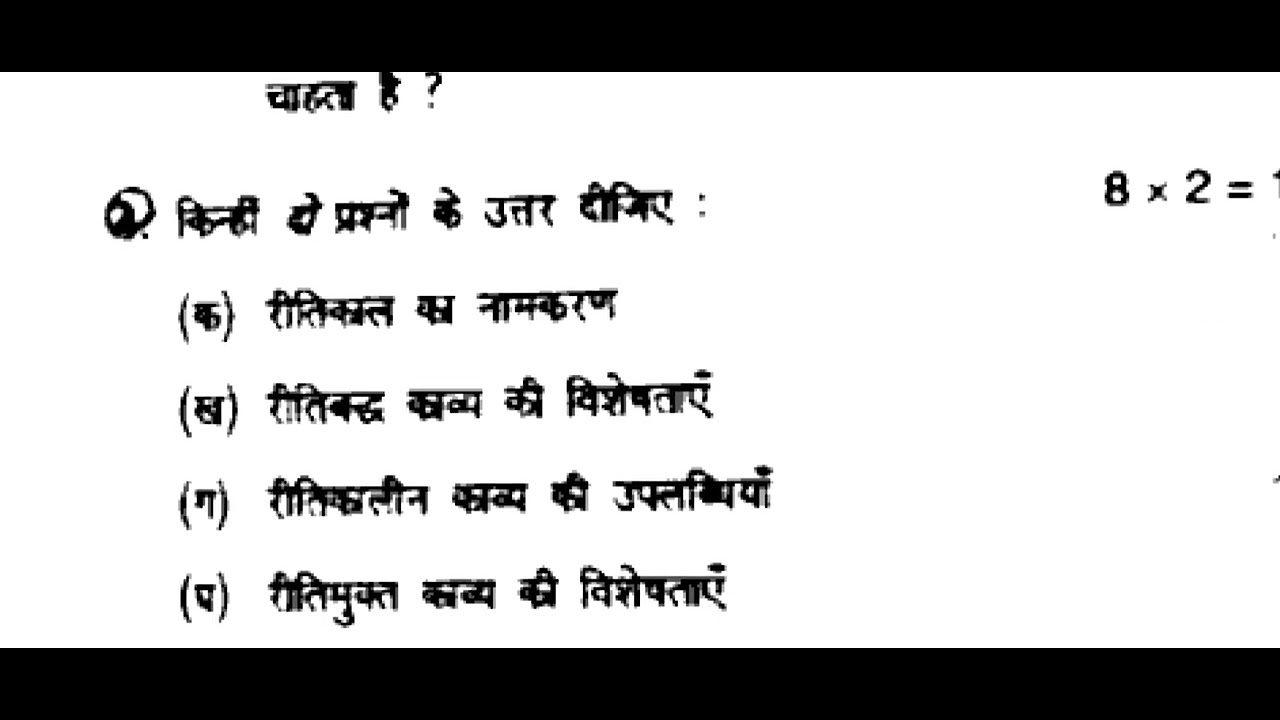 चाहता है ?
2. किन्हीं दो प्रश्नों के उत्तर दीजिए : 8 × 2 = 1
(क) रीतिकाल का नामकरण
(ख) रीतिबद्ध काव्य की विशेषताएँ
(ग) रीतिकालीन काव्य की उपलब्धियाँ
(घ) रीतिमुक्त काव्य की विशेषताएँ